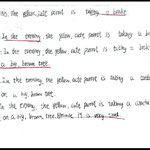 the yellow, cute parrot is taking a
In the evening, the yellow, cute parrot is taking a
a big, brown tree.
In the evening, the yellow, cute parrot is taking a
on a big, brown tree.
In the evening, the yellow, cute parrot is taking a
on a big, brown tree. Because it is very tired.